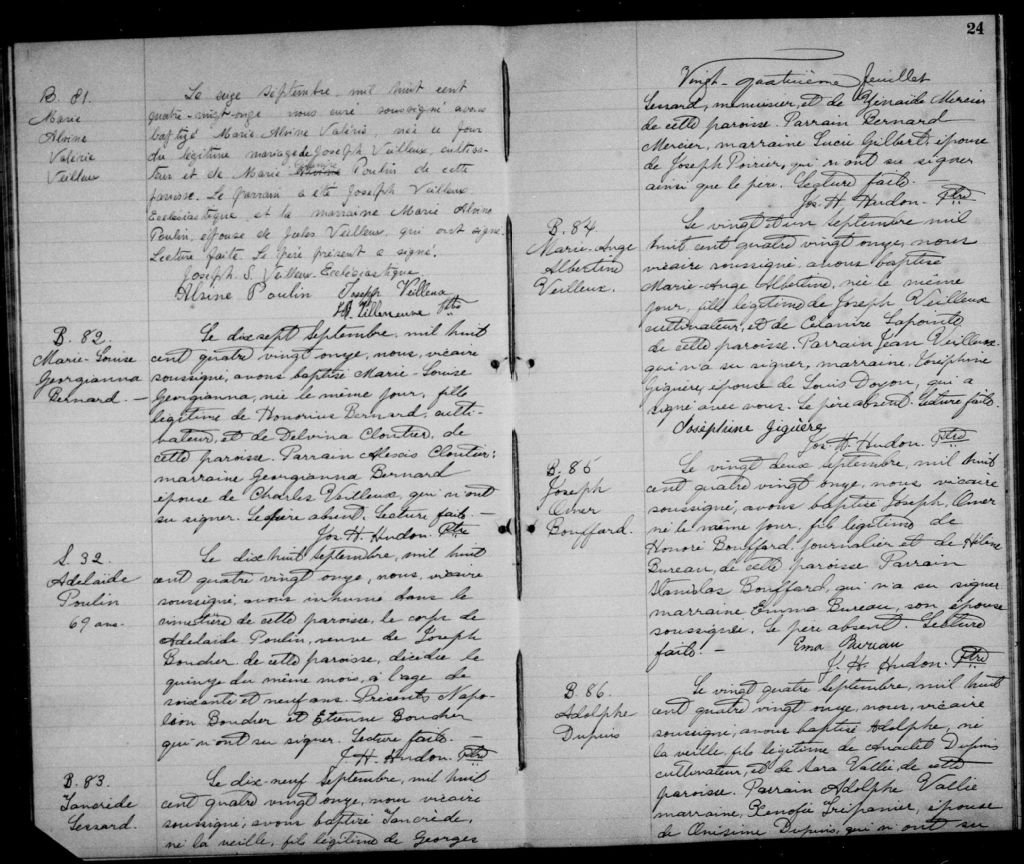 B. 81.
Marie
Alvine
Valérie
Veilleux
Le seize septembre mil huit cent
quatre-vingt-onze nous curé soussigné avons
baptizé Marie Alvine Valérie, née ce jour
du légitime mariage de Joseph Veilleux, cultiva-
teur et de Marie Poulin de cette
paroisse. Le parrain a été Joseph Veilleux
Ecclésiastique, et la marraine Marie Alvine
Poulin, épouse de Jules Veilleux, qui ont signé.
Lecture faite. Le père présent a signé.
Joseph. S. Veilleux. Ecclésiastique
Alvine Poulin Joseph Veilleux
Villeneuve Ptre
B. 82.
Marie-Louise
Georgianna
Bernard. —
Le dix sept septembre, mil huit
cent quatre vingt onze, nous, vicaire
soussigné, avons baptisé Marie-Louise
Georgianna, née le même jour, fille
légitime de Honorius Bernard, culti-
vateur, et de Delvina Cloutier, de
cette paroisse. Parrain Alexis Cloutier;
marraine Georgianna Bernard
épouse de Charles Veilleux, qui n'ont
su signer. Le père absent. Lecture faite. —
Jos. H. Hudon. Ptre
S. 32
Adelaide
Poulin
69 ans.
Le dix huit septembre, mil huit
cent quatre vingt onze, nous, vicaire
soussigné, avons inhumé dans le
cimetière de cette paroisse, le corps de
Adelaide Poulin, veuve de Joseph
Boucher, de cette paroisse, décédée le
quinze du même mois, à l'age de
soixante et neuf ans. Présents Napo-
léon Boucher et Etienne Boucher
qui n'ont su signer. Lecture faite. —
J. H. Hudon. Ptre
B. 83.
Tancrède
Lessard.
Le dix-neuf septembre, mil huit
cent quatre vingt onze, nous vicaire
soussigné, avons baptisé Tancrède,
né la veille, fils légitime de Georges
24
Vingt-quatrième feuillet
Lessard, menuisier, et de Zénaide Mercier
de cette paroisse. Parrain Bernard
Mercier, marraine Lucie Gilbert, épouse
de Joseph Poirier, qui n'ont su signer
ainsi que le père. Lecture faite. —
Jos. H. Hudon. Ptre
B. 84
Marie-Ange
Albertine
Veilleux.
Le vingt et un septembre mil
huit cent quatre vingt onze, nous
vicaire soussigné avons baptisé
Marie-Ange Albertine, née le même
jour, fille légitime de Joseph Veilleux
cultivateur, et de Célanire Lapointe
de cette paroisse. Parrain Jean Veilleux
qui n'a su signer, marraine, Joséphine
Giguère, épouse de Louis Doyon, qui a
signé avec nous. Le père absent. Lecture faite.
Joséphine Giguère
Jos. H. Hudon. Ptre
B. 85
Joseph
Omer
Bouffard.
Le vingt deux septembre, mil huit
cent quatre vingt onze, nous vicaire
soussigné, avons baptisé Joseph, Omer
né le même jour, fils légitime de
Honoré Bouffard, journalier et de Hélène
Bureau, de cette paroisse Parrain
Stanislas Bouffard, qui n'a su signer
marraine Emma Bureau, son épouse
soussignée. Le père absent Lecture
faite. —
Ema Bureau
J. H. Hudon. Ptre
B. 86.
Adolphe
Dupuis
Le vingt quatre septembre, mil huit
cent quatre vingt onze, nous, vicaire
soussigné, avons baptisé Adolphe, né
la veille, fils légitime de Anaclet Dupuis
cultivateur, et de Sara Vallée, de cette
paroisse. Parrain Adolphe Vallée
marraine, Trépanier, épouse
de Onésime Dupuis, qui n'ont su